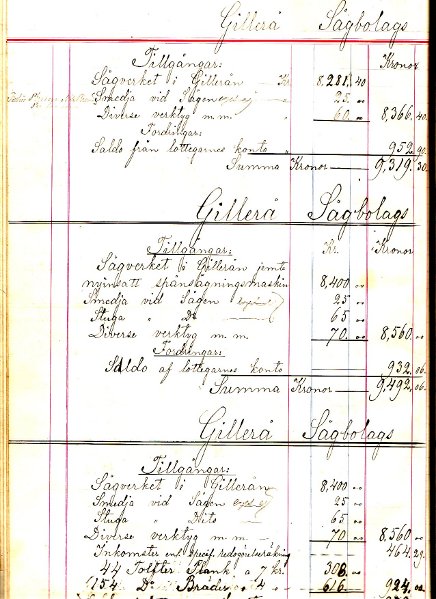 Gillerå Sågbolags
Tillgångar: Kronor
Sågverket i Gillerån Kr 8,281. 40
Smedja vid Sågen 25. 00
Diverse verktyg m.m. 60. 00 8,366. 40
Fordringar:
Saldo från lottegarnes konto 952. 90
Summa Kronor 9,319. 30
Gillerå Sågbolags
Tillgångar: Kr. Kronor
Sågverket i Gillerån jemte
nyinsatt spånsågningsmaskin 8,400 00
Smedja vid Sågen 25 00
Stuga " Do 65 00
Diverse verktyg m.m. 70. 00 8,560. 00
Fordringar:
Saldo af lottegarnes konto 932. 06.
Summa Kronor 9,492. 06.
Gillerå Sågbolags
Tillgångar:
Sågverket i Gillerån 8,400 00
Smedja vid Sågen 25 00
Stuga " Dito 65 00
Diverse verktyg m.m. 70 00 8,560 00
Inkomster enl. Specif. 464. 29.
44 Tolfter Plank a 7 kr. 308. 00
154 Do Bräder " 4 " 616. 00 924. 00